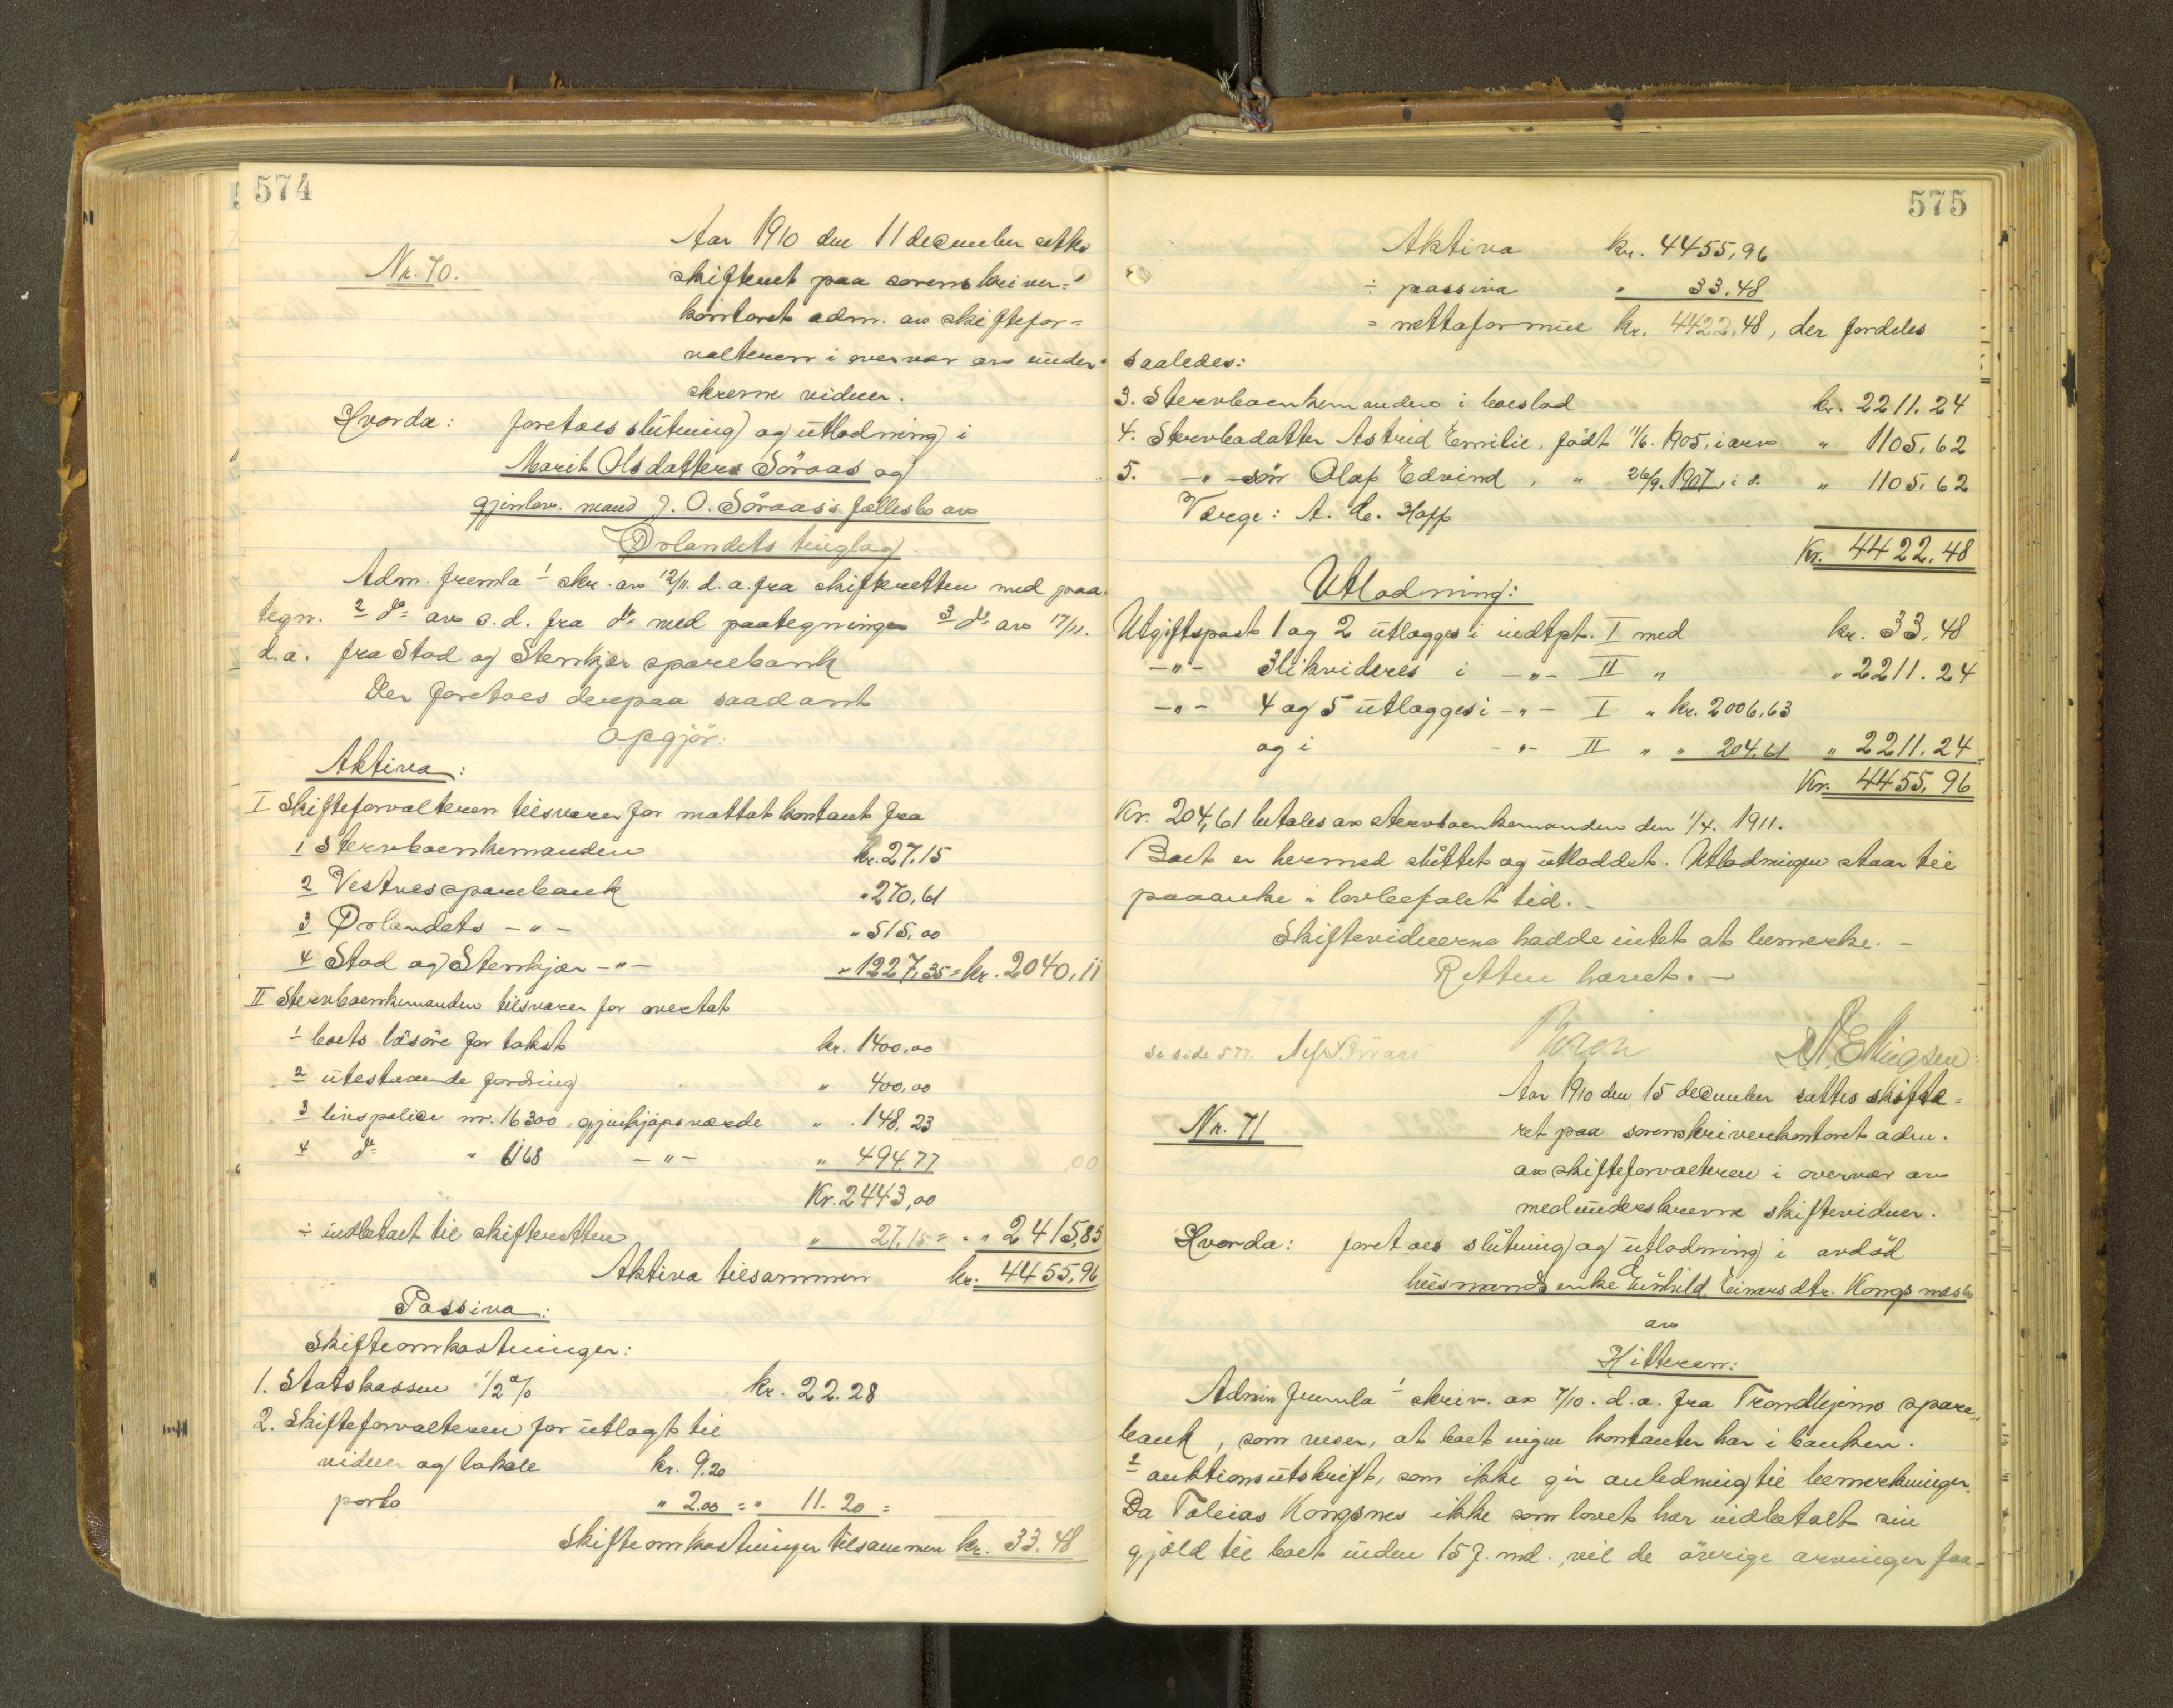 574
Aar 1910 den 11 december sattes
Nr. 70.
skifteret paa sorenskriver-
kontoret adm. av skiftefor=
valteren i overvær av under-
skrevne vidner.
Hvorda: foretoes slutning og utlodning i
Marit Olsdatters Söraas og
gjenlev. mand J. O. Söraas's fællesbo av
Ørlandets tinglag
Adm. fremla 1 skr. av 12/11. d.a. fra skifteretten med paa
tegn. 2 do av s.d. fra do med paategning 3 do av 17/11.
d.a. fra Stod og Stenkjær sparebank
Der foretoes derepaa saadant
opgjör:
Aktiva:
I Skifteforvalteren tilsvarer for mottat kontant fra
1 Stervboenkemanden kr. 27,15
2 Vestnes sparebank " 270,61
3 Ørlandets -"- " 515,00
4 Stod og Stenkjær -"- " 1227,35 = kr. 2040,11
II Stervboenkemanden tilsvarer for overtat
1 boets lösöre for takst kr. 1400,00
2 utestaaende fordring " 400,00
3 livspolice nr. 16300, gjenkjöpsværde " 148,23
4 do " 6168 -"- " 494,77
Kr. 2443,00
÷ indbetalt til skifteretten " 27,15 = " " 2415,85
Aktiva tilsammen kr. 4455,96
Passiva:
Skifteomkostninger:
1. Statskassen 1/2 % kr. 22.28
2. Skifteforvalteren for utlagt til
vidner og lokale kr. 9.20
porto " 2.00 = " 11.20 =
Skifteomkostninger tilsammen kr. 33.48
575
Aktiva kr. 4455,96
÷ passiva " 33.48
= nettoformue kr. 4422,48, der fordeles
saaledes:
3. Stervboenkemanden i boeslod kr. 2211.24
4. Stervbodatter Astrid Emilie, födt 11/6. 1905, i arv " 1105,62
5. -"- sön Olaf Edvind, " 26/9. 1907, i d. " 1105,62
Værge: A. C. Hoff
Kr. 4422,48
Utlodning:
Utgiftspost 1 og 2 utlægges i indtpt. I med kr. 33,48
-"- 3 likvideres i -"- II " " 2211.24
-"- 4 og 5 utlægges i -"- I " kr. 2006,63
og i -"- II " " 204,61 " 2211.24
Kr. 4455,96
Kr. 204,61 betales av stervboenkemanden den 1/4. 1911.
Boet er hermed sluttet og utloddet. Utlodningen staar til
paaanke i lovbefalet tid. -
Skiftevidnerne hadde intet at bemerke. -
Retten hævet. -
se side 577.
Aar 1910 den 15 december sattes skifte-
Nr. 71
ret paa sorenskriverkontoret adm.
av skifteforvalteren i overvær av
medunderskrevne skiftevidner.
Hvorda: foretoes slutning og utlodning i avdöd
husmandsenke Gunhild Einarsdtr. Kongsnesbo
av
Hitteren:
Admin fremla 1 skriv. av 7/10. d.a. fra Trondhjems spare-
bank, som viser, at boet ingen kontanter har i banken.
2 auktionsutskrift, som ikke gir anledning til bemerkninger.
Da Tobias Kongsnes ikke som lovet har indbetalt sin
gjæld til boet inden 15 f. md., vil de övrige arvinger faa-